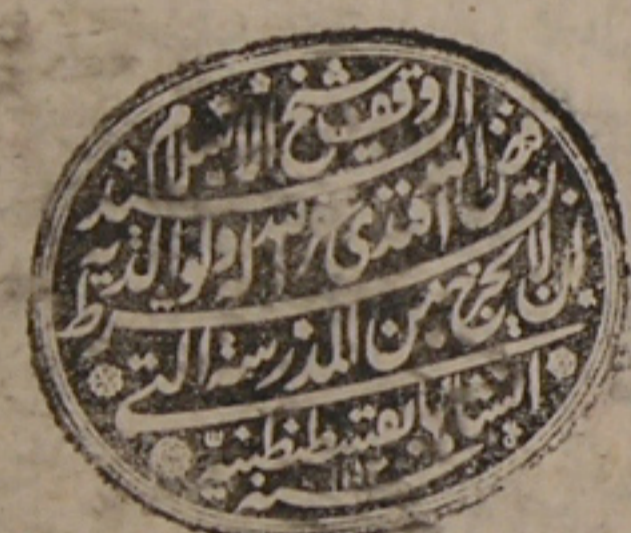 وقف شيخ الاسلام
السيد فيض الله افندى غفر الله له ولوالديه
بشرط ان لا يخرج من المدرسة التي
انشاها بقسطنطنية
سنه